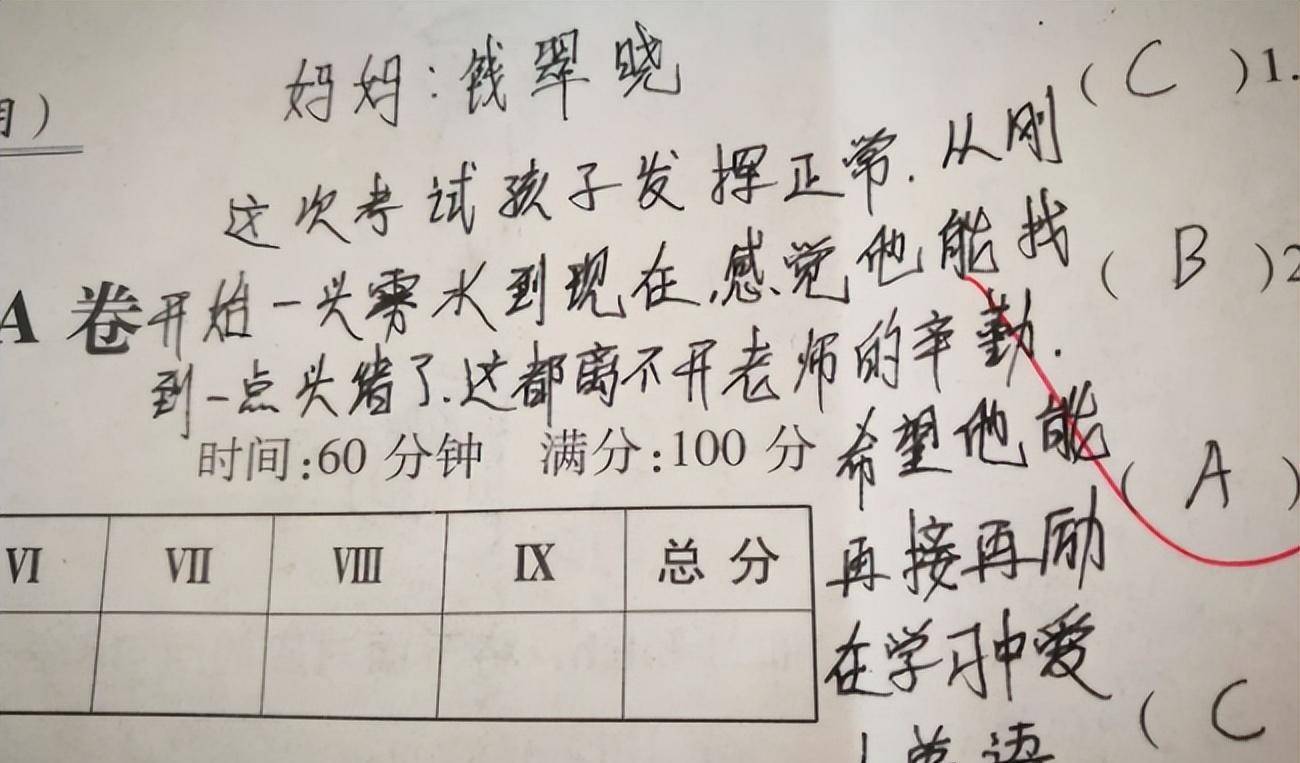 妈妈:钱翠晓
这次考试孩子发挥正常.从刚
开始一头雾水到现在,感觉他能找
到一点头绪了.这都离不开老师的辛勤.
希望他能
再接再励
在学习中爱
上英语
月)
A 卷
时间:60 分钟 满分:100 分
VI VII VIII IX 总分
( C )1.
( B )2
( A )
( C